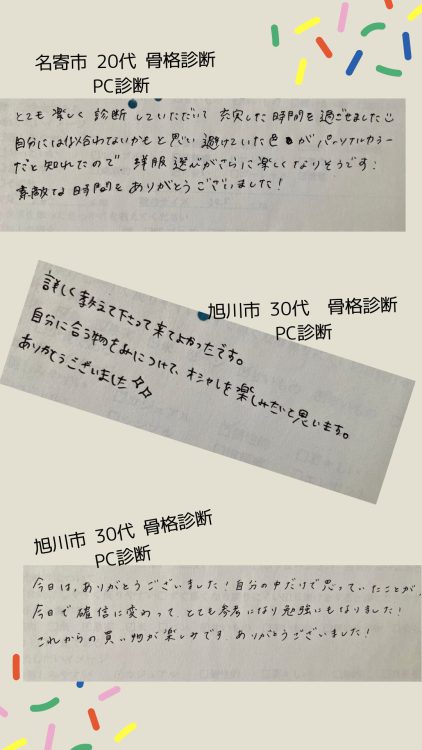 名寄市 20代 骨格診断
PC診断
とても楽しく診断していただいて充実した時間を過ごせました
自分には似合わないかもと思い避けていた色がパーソナルカラー
だと知れたので、洋服選びがさらに楽しくなりそうです!
素敵な時間をありがとうございました!
旭川市 30代 骨格診断
PC診断
詳しく教えて下さって来てよかったです。
自分に合う物をみにつけて、オシャレを楽しみたいと思います。
ありがとうございました
旭川市 30代 骨格診断
PC診断
今日は、ありがとうございました!自分の中だけで思っていたことが、
今日で確信に変わって、とても参考になり勉強にもなりました!
これからの買い物が楽しみです。ありがとうございました!